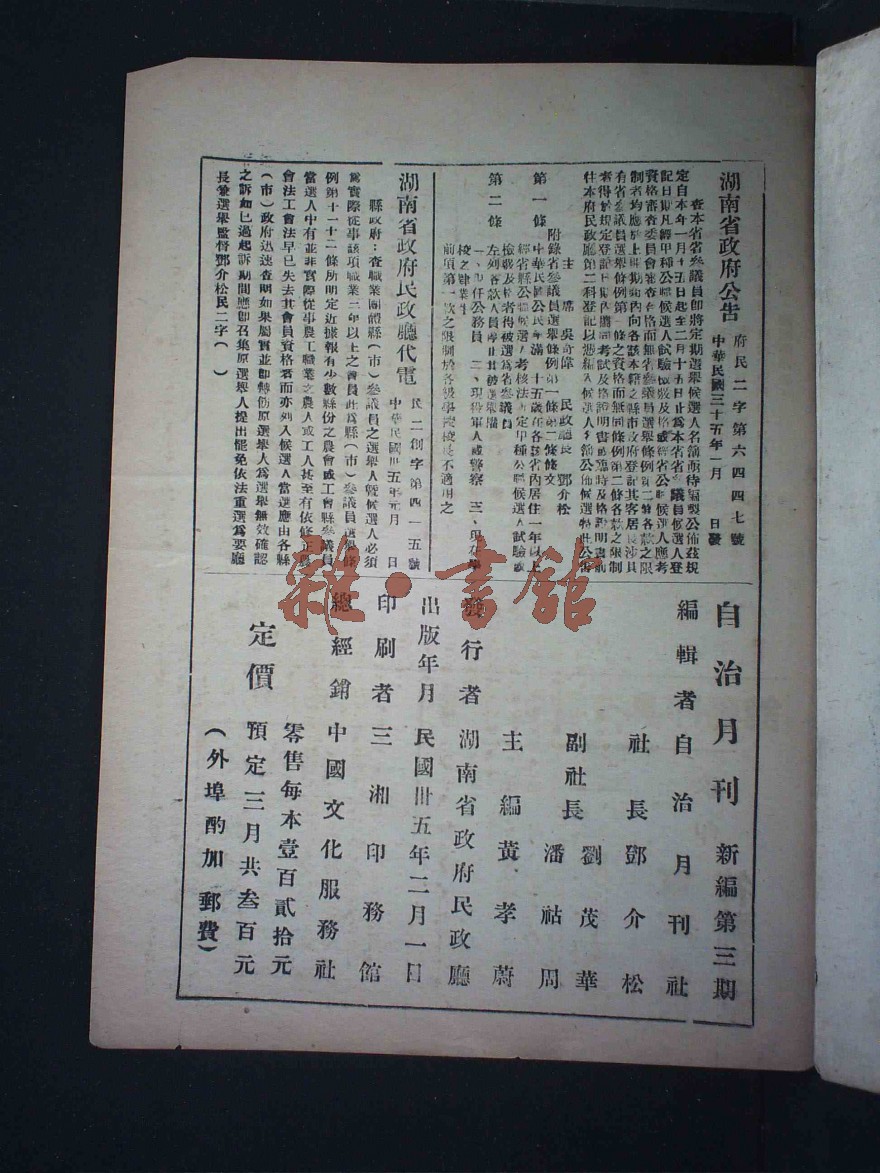 湖南省政府公告
府民二字第六四四七號
中華民國三十五年一月 日發
查本省省參議員卽將定期選舉候選人名額亟待編製公佈茲規
定自本年一月十五日起至二月十五日止爲本省省參議員候選人登
記日期凡經甲種公職候選人試驗檢覈及格或經省公職候選人應考
資格審查委員會審查合格而無省參議員選舉條例第二條各款之限
制者均應於上開期內向各該本籍之縣市政府登記其客居長沛具
有省參議員選舉條例第一條之資格而無同條例第二條各款之限制
者得依規定登記日期內檢同考試及格證明書或臨時及格證明書逕
往本府民政廳第二科登記以憑編入候選人名額公佈候選特此公告
主席 吳奇偉 民政廳長 鄧介松
附錄省參議員選舉條例第一條第二條條文
第一條 中華民國公民年滿二十五歲在各該省內居住一年以上
經省縣公職候選人考核法所定甲種公職候選人試驗或
檢覈及格者得被選爲省參議員
第二條 左列各款人員停止其被選舉權
一、現任公務員 二、現役軍人或警察 三、現在學
校之肄業生
前項第一款之限制於各級學校校長不適用之
湖南省政府民政廳代電
民二創字第四一五號
中華民國卅五年元月 日
縣政府：查職業團體縣（市）參議員之選舉人曁候選人必須
爲實際從事該項職業三年以上之會員此爲縣（市）參議員選舉條
例第十一十二條所明定近據報有少數縣份之農會或工會縣參議員
當選人中有並非實際從事農工職業之農人或工人甚至有依修正農
會法工會法早已失去其會員資格者而亦列入候選人當選應由各縣
（市）政府迅速查明如果屬實並卽轉飭原選舉人爲選舉無效確認
之訴如已過起訴期間應卽召集原選舉人提出罷免依法重選爲要廳
長兼選舉監督鄧介松民二字（ ）
自治月刊 新編第三期
編輯者 自治月刊社
社長 鄧介松
副社長 劉茂華
潘祜周
主編 黃孝蔚
發行者 湖南省政府民政廳
出版年月 民國卅五年二月一日
印刷者 三湘印務館
總經銷 中國文化服務社
定價 零售每本壹百貳拾元
預定三月共叁百元
（外埠酌加郵費）
雜·書館